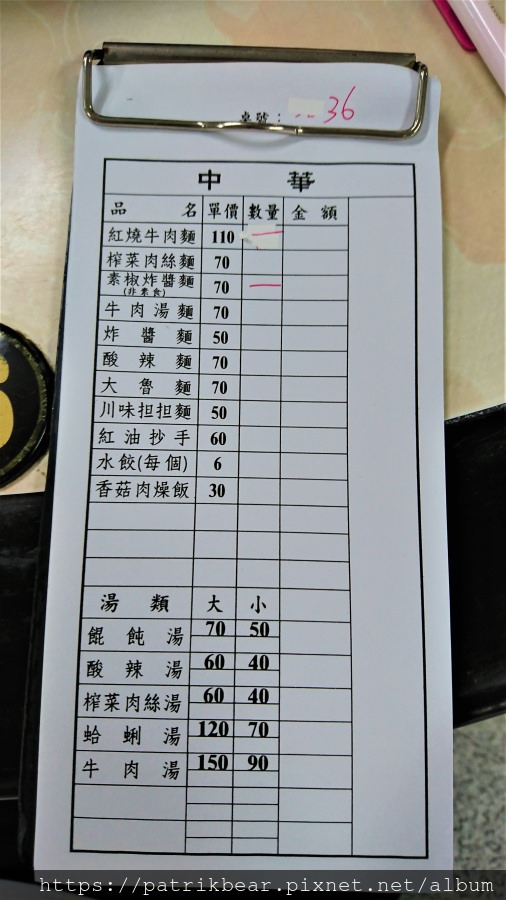 桌號： 36
中 華
品 名 單價 數量 金 額
紅燒牛肉麵 110 一
榨菜肉絲麵 70
素椒炸醬麵 70 一
(非素食)
牛肉湯麵 70
炸醬麵 50
酸辣麵 70
大魯麵 70
川味担担麵 50
紅油抄手 60
水餃(每個) 6
香菇肉燥飯 30
湯 類 大 小
餛飩湯 70 50
酸辣湯 60 40
榨菜肉絲湯 60 40
蛤蜊湯 120 70
牛肉湯 150 90
https://patrikbear.pixnet.net/album